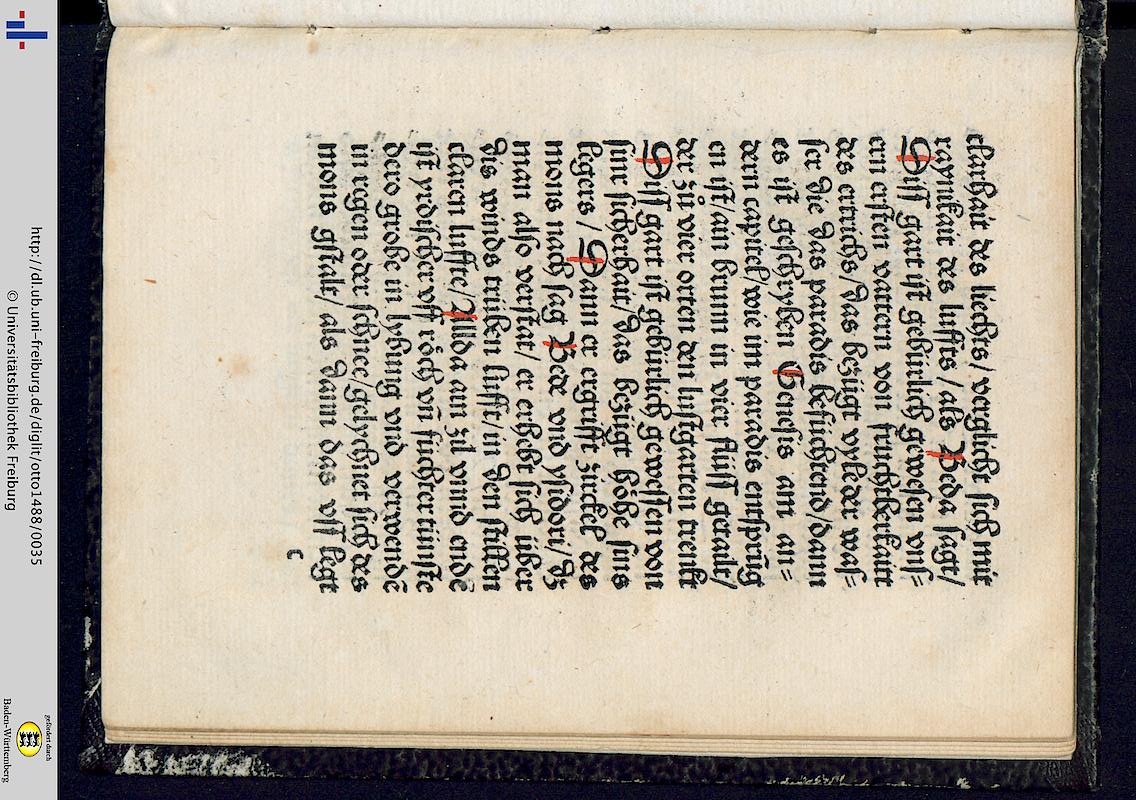 clarhait des liechts/ verglicht sich mit
raynikait des luffts/ als Beda sagt/
Diss gart ist gebürlich gewesen vns=
ern ersten vattern von fruchtberkaitt
des ertrichs/ das bezügt vyleder was=
ser die das paradis befüchtend/ dann
es ist geschryben Genesis am an=
dern capitel/ wie im paradis entsprūg
en ist/ an brunn in vier flüss getalt/
der zů vier orten den lustgarten trenkt
Diss gart ist gebürlich gewessen von
siner sicherhait/ das bezügt höhe sins
legers/ Dann er ergrifft zirckel des
mons nach sag Bede vnd ysidori/ dz
man also verstat/ er erhebt sich über
dis winds trüben lufft/ in den stillen
claren luffte/ Allda am zil vnnd endē
ist yrdischer vff röch vn̄ füchter tünste
dero grosse in lybung vnd verwendē
in regen oder schnee/ gelychnet sich des
mons gstalt/ als dann das vff legt
c
http://dl.ub.uni-freiburg.de/diglit/otto1488/0035
© Universitätsbibliothek Freiburg
gefördert durch
Baden-Württemberg